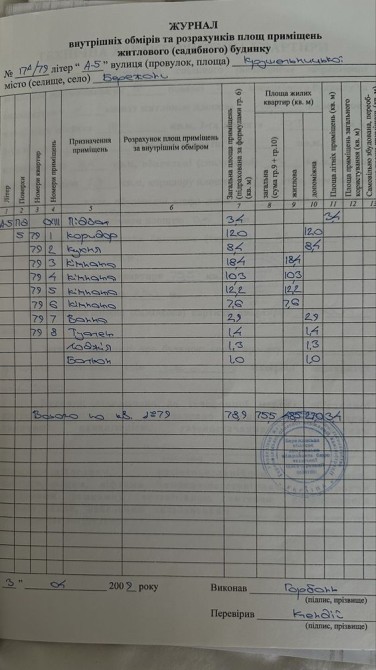 ЖУРНАЛ
внутрішніх обмірів та розрахунків площ приміщень
житлового (садибного) будинку
№ 17а/79 літер " А-5 " вулиця (провулок, площа) Крушельницької
місто (селище, село) Бережани
Літер
Поверхи
Номери квартир
Номери приміщень
Призначення приміщень
Розрахунок площ приміщень за внутрішнім обміром
Загальна площа приміщень (підрахована за формулами гр. 6) (кв. м)
Площа жилих квартир (кв. м)
загальна (сума гр.9 + гр.10)
житлова
допоміжна
Площа літніх приміщень (кв. м)
Площа приміщень загального користування (кв. м)
Самовільно збудована, переоб-
1 2 3 4 5 6 7 8 9 10 11 12 13
А-5 Пд Підвал 3,4 3,4
5 79 1 Коридор 12,0 12,0
79 2 Кухня 8,4 8,4
79 3 Кімната 18,4 18,4
79 4 Кімната 10,3 10,3
79 5 Кімната 12,2 12,2
79 6 Кімната 7,6 7,6
79 7 Ванна 2,9 2,9
79 8 Туалет 1,4 1,4
Лоджія 1,3 1,3
Балкон 1,0 1,0
Всього по кв. №79 78,9 75,5 48,5 27,0 3,4
3 " 200 року
Виконав Горбань
(підпис, прізвище)
Перевірив
(підпис, прізвище)